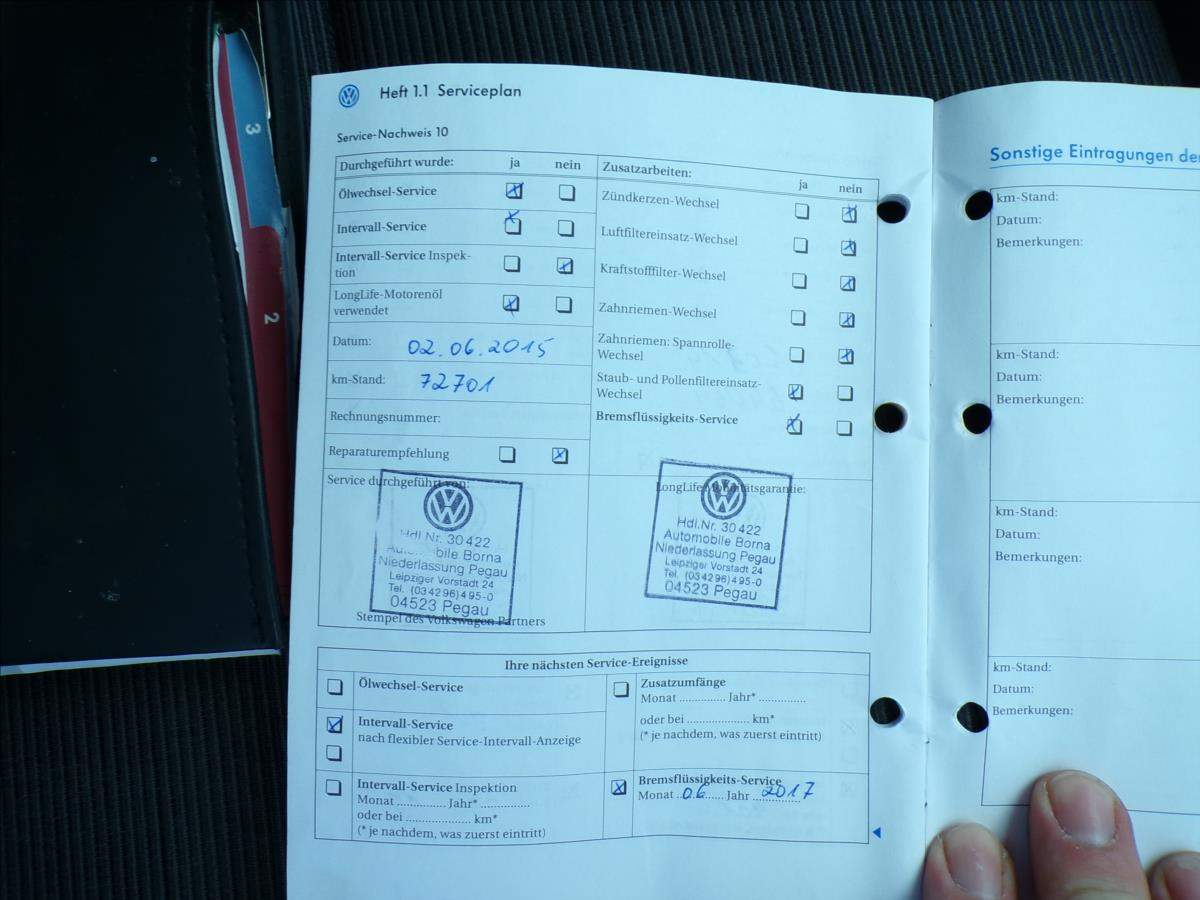 3
2
Heft 1.1 Serviceplan
Service-Nachweis 10
Durchgeführt wurde: ja nein
Ölwechsel-Service
Intervall-Service
Intervall-Service Inspek-
tion
LongLife-Motorenöl
verwendet
Datum: 02.06.2015
km-Stand: 72701
Rechnungsnummer:
Reparaturempfehlung
Zusatzarbeiten: ja nein
Zündkerzen-Wechsel
Luftfiltereinsatz-Wechsel
Kraftstofffilter-Wechsel
Zahnriemen-Wechsel
Zahnriemen: Spannrolle-
Wechsel
Staub- und Pollenfiltereinsatz-
Wechsel
Bremsflüssigkeits-Service
Service durchgeführt von:
Hdl.Nr. 30422
Automobile Borna
Niederlassung Pegau
Leipziger Vorstadt 24
Tel. (034296) 495-0
04523 Pegau
Stempel des Volkswagen Partners
LongLife-Mobilitätsgarantie:
Hdl.Nr. 30422
Automobile Borna
Niederlassung Pegau
Leipziger Vorstadt 24
Tel. (034296) 495-0
04523 Pegau
Ihre nächsten Service-Ereignisse
Ölwechsel-Service
Intervall-Service
nach flexibler Service-Intervall-Anzeige
Intervall-Service Inspektion
Monat .............. Jahr* ..............
oder bei .................... km*
(* je nachdem, was zuerst eintritt)
Zusatzumfänge
Monat .............. Jahr* ..............
oder bei .................... km*
(* je nachdem, was zuerst eintritt)
Bremsflüssigkeits-Service
Monat 06 Jahr 2017
Sonstige Eintragungen
km-Stand:
Datum:
Bemerkungen:
km-Stand:
Datum:
Bemerkungen:
km-Stand:
Datum:
Bemerkungen:
km-Stand:
Datum:
Bemerkungen: